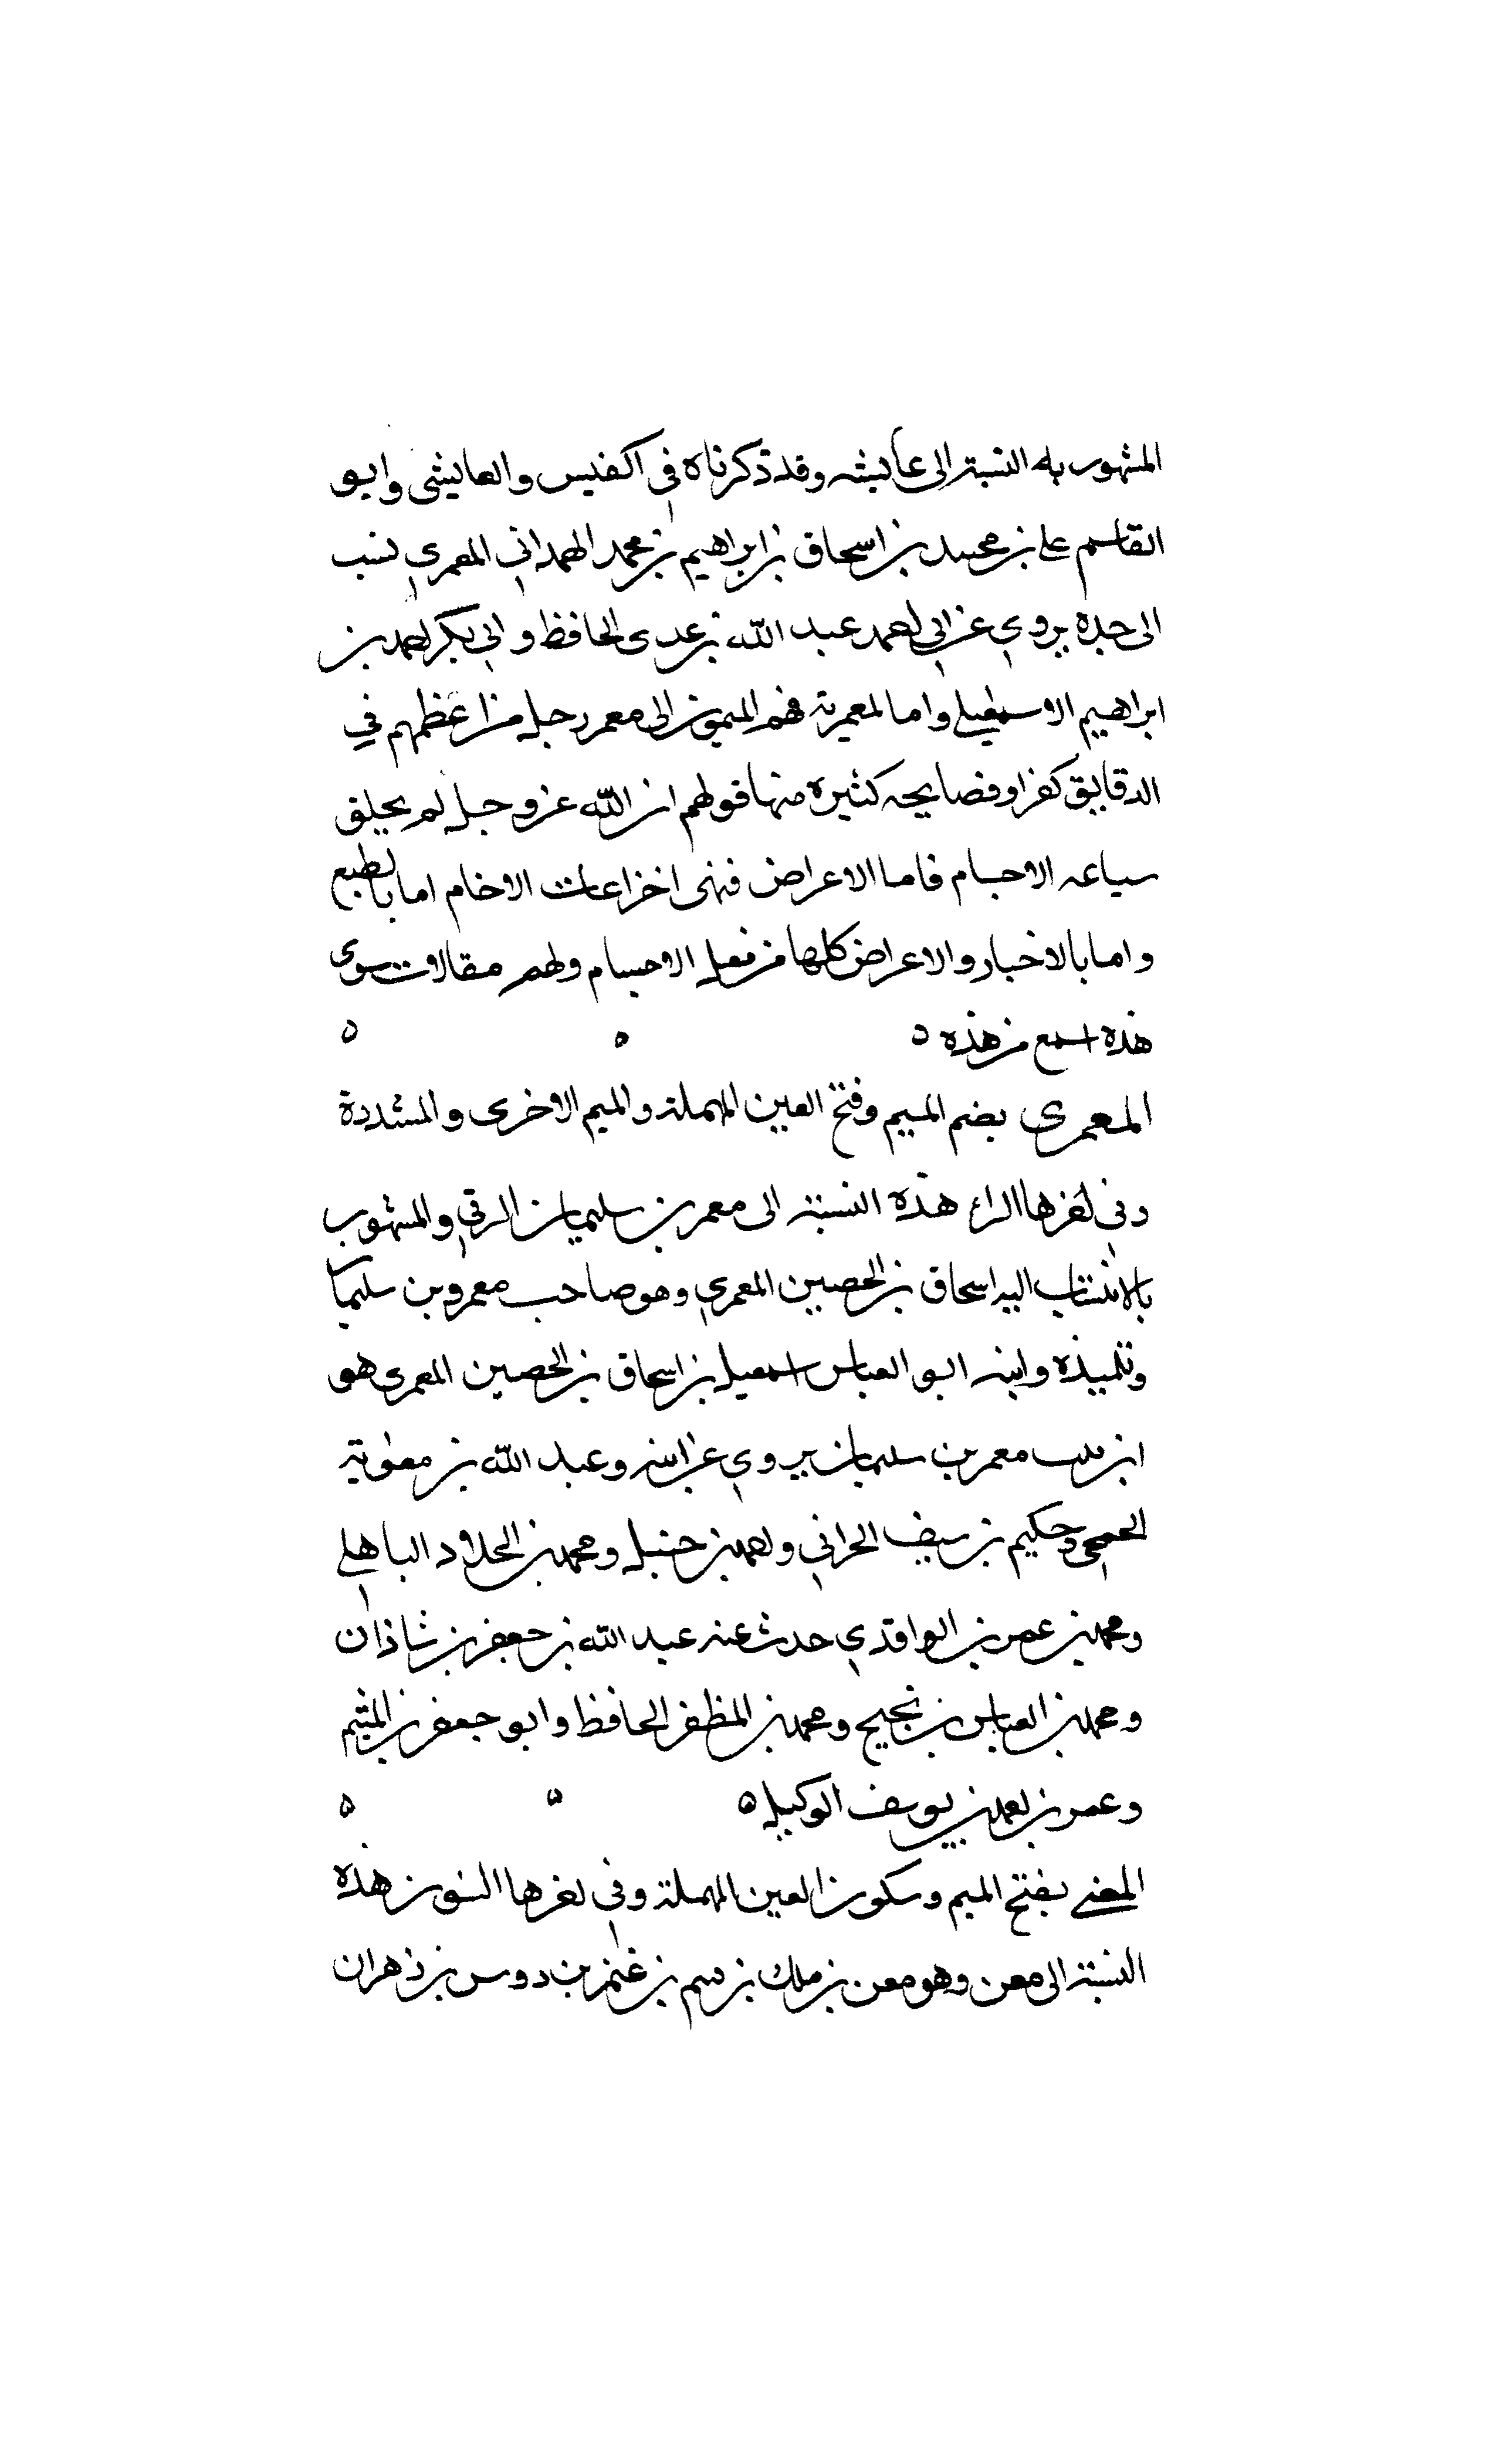 المشهور به النسبة الى عايشه وقد ذكرناه في اكفيس والعايشى وابو
القاسم على بن محمد بن اسحاق بن ابراهيم بن محمد الهمداني المعمري نسب
الى جده يروي عن ابي احمد عبد الله بن عدى الحافظ وابي بكر احمد بن
ابراهيم الاسمعيلي واما المعمرية فهم المنتمون الى معمر رجل من اعظمهم في
الدقايق كفرا وفضايحه كثيرة منها قولهم ان الله عز وجل لم يخلق
الاجسام فاما الاعراض فهى اختراعات الاجسام اما بالطبع
واما بالاختيار والاعراض كلها من فعل الاجسام ولهم مقالات سوى
هذه اسمع من هذه ٥ ٥ ٥
المعمرى بضم الميم وفتح العين المهملة والميم الاخرى والمشددة
وفي اخرها الراء هذه النسبة الى معمر بن سليمان الرقي والمشهور
بالانتساب اليه اسحاق بن الحصين المعمري وهو صاحب معمر بن سليمان
وتلميذه وابنه ابو العباس اسمعيل بن اسحاق بن الحصين المعمرى هو
ابن بنت معمر بن سليمان يروي عن ابيه وعبد الله بن معوية
الجمحي وحكيم بن سيف الحراني واحمد بن حنبل ومحمد بن الخلاد الباهلي
ومحمد بن عمر بن الواقدي حدث عنه عبد الله بن جعفر بن شاذان
ومحمد بن العباس بن نجيح ومحمد بن المظفر الحافظ وابو جعفر بن المتيم
وعمر بن احمد بن يوسف الوكيل ٥ ٥ ٥
المعني بفتح الميم وسكون العين المهملة وفي اخرها النون هذه
النسبة الى معن وهو معن بن ملك بن فهم بن غنم بن دوس بن زهران